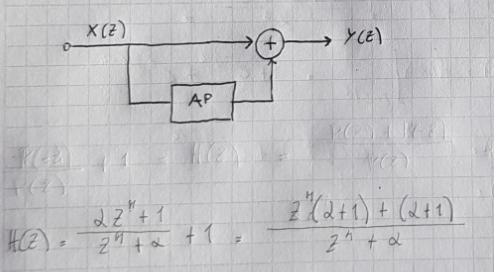 X(z)
+
Y(z)
AP
H(z) = (αz^n + 1)/(z^n + α) + 1 = (z^n(α+1) + (α+1))/(z^n + α)